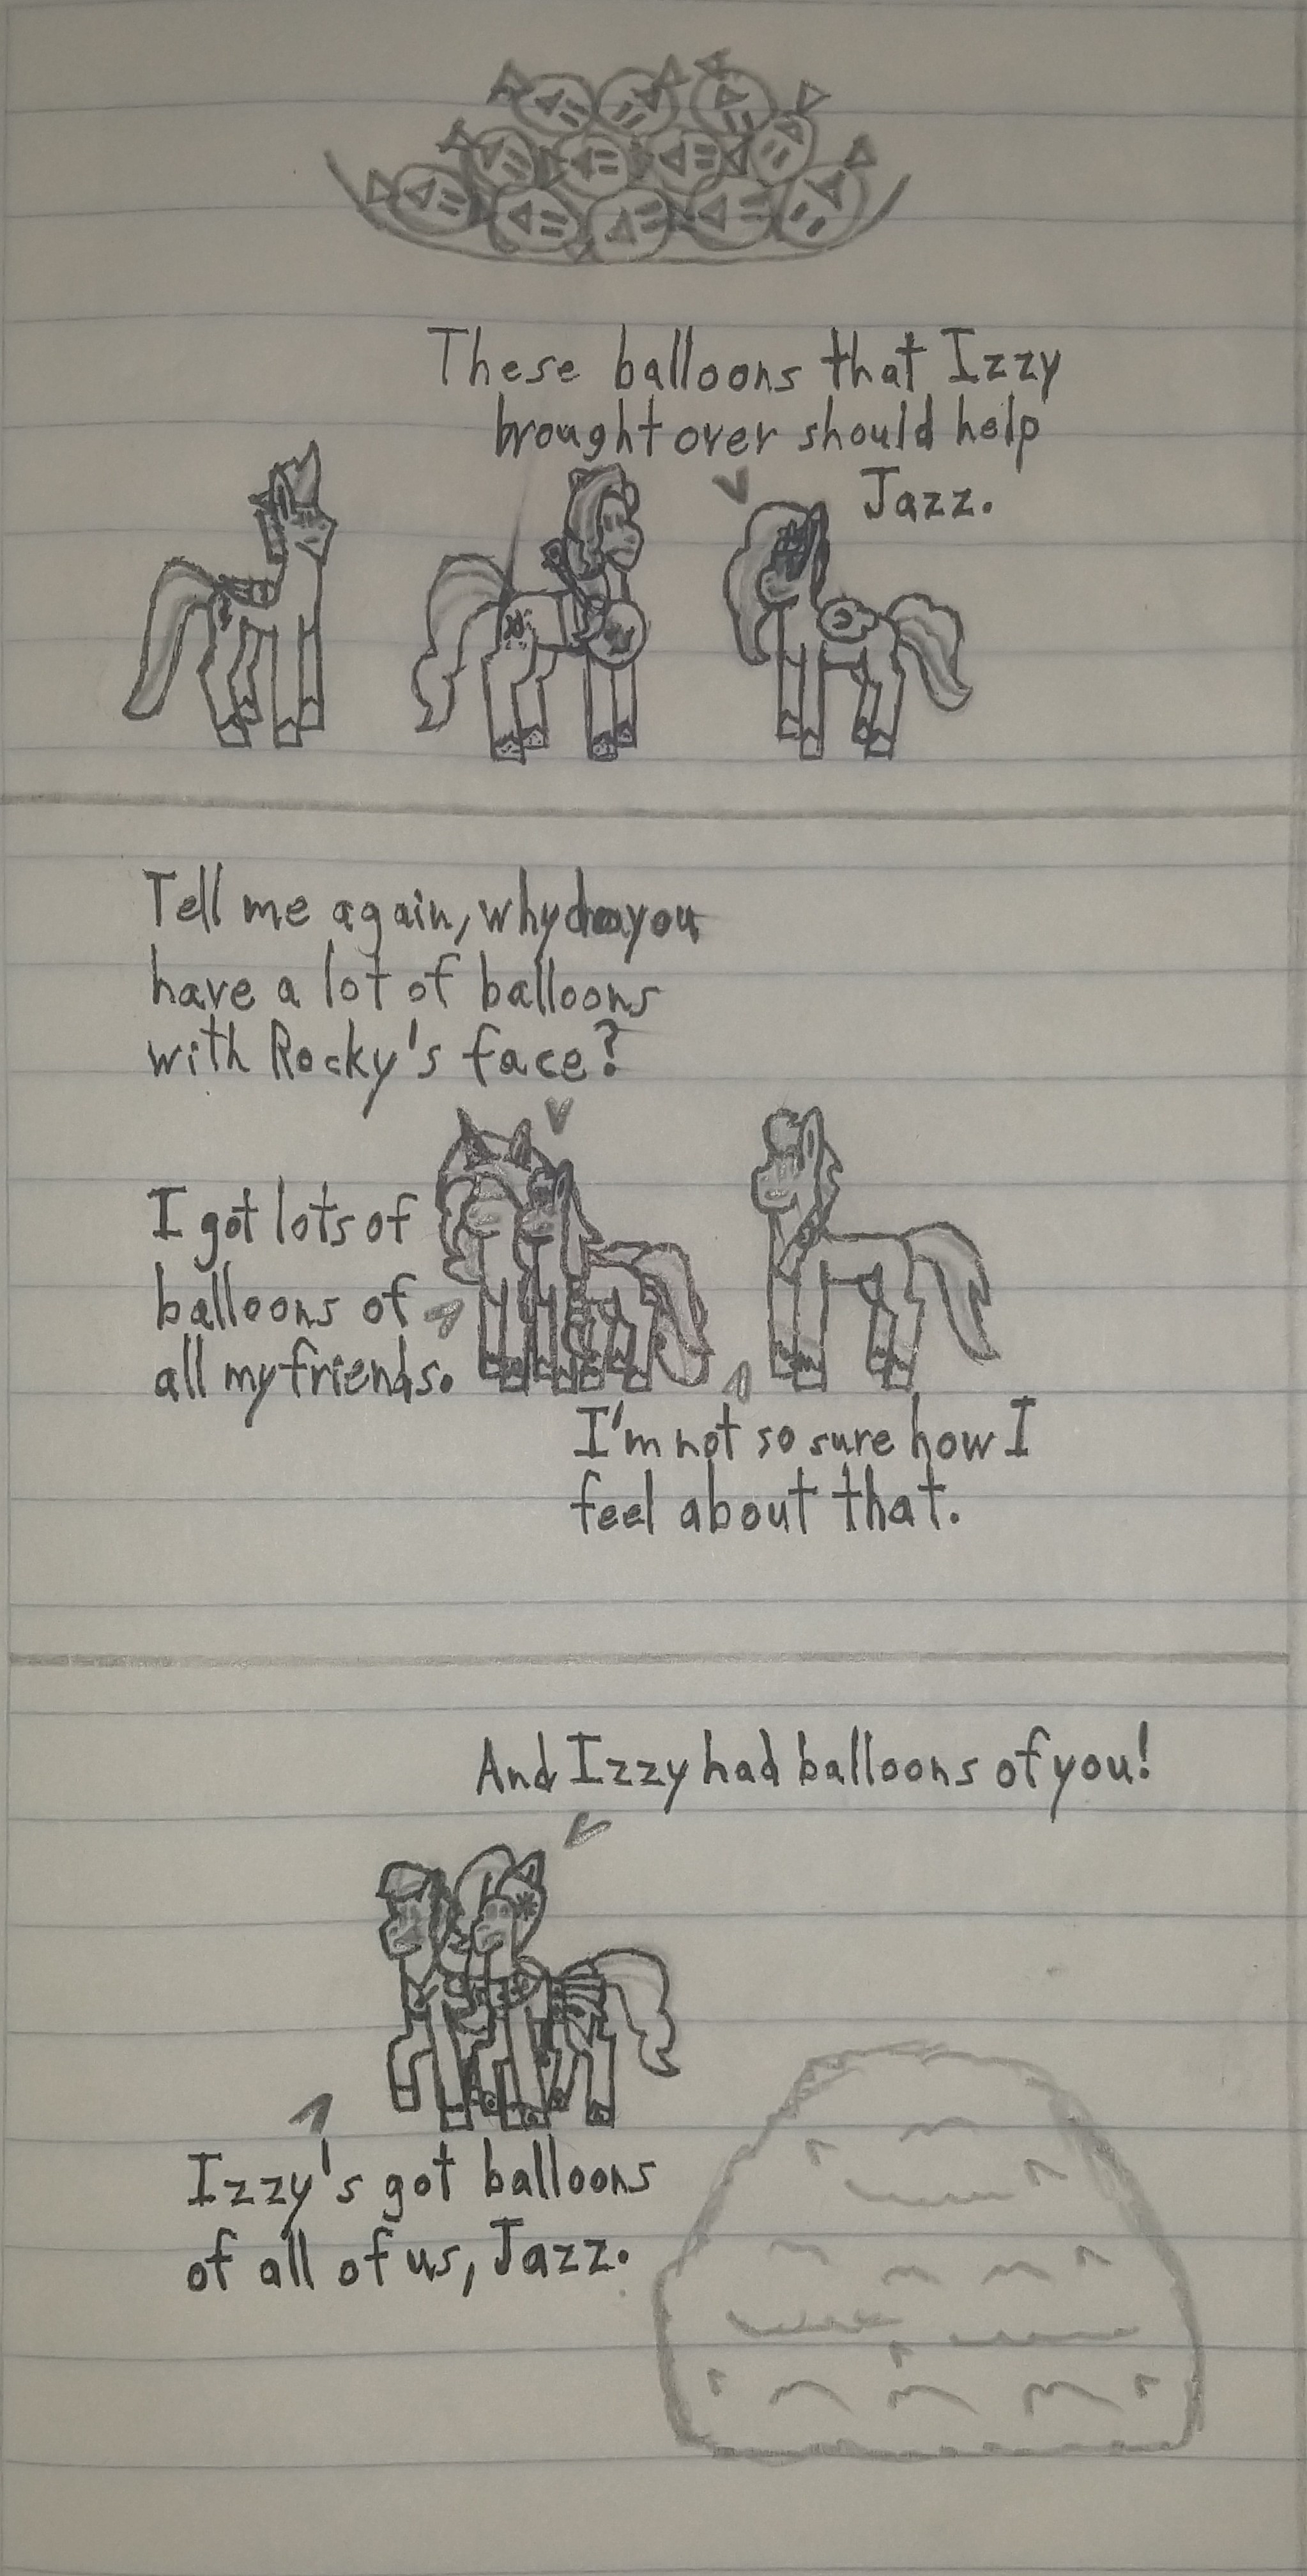 These balloons that Izzy
brought over should help
Jazz.
Tell me again, why do you
have a lot of balloons
with Rocky's face?
I got lots of
balloons of
all my friends.
I'm not so sure how I
feel about that.
And Izzy had balloons of you!
Izzy's got balloons
of all of us, Jazz.